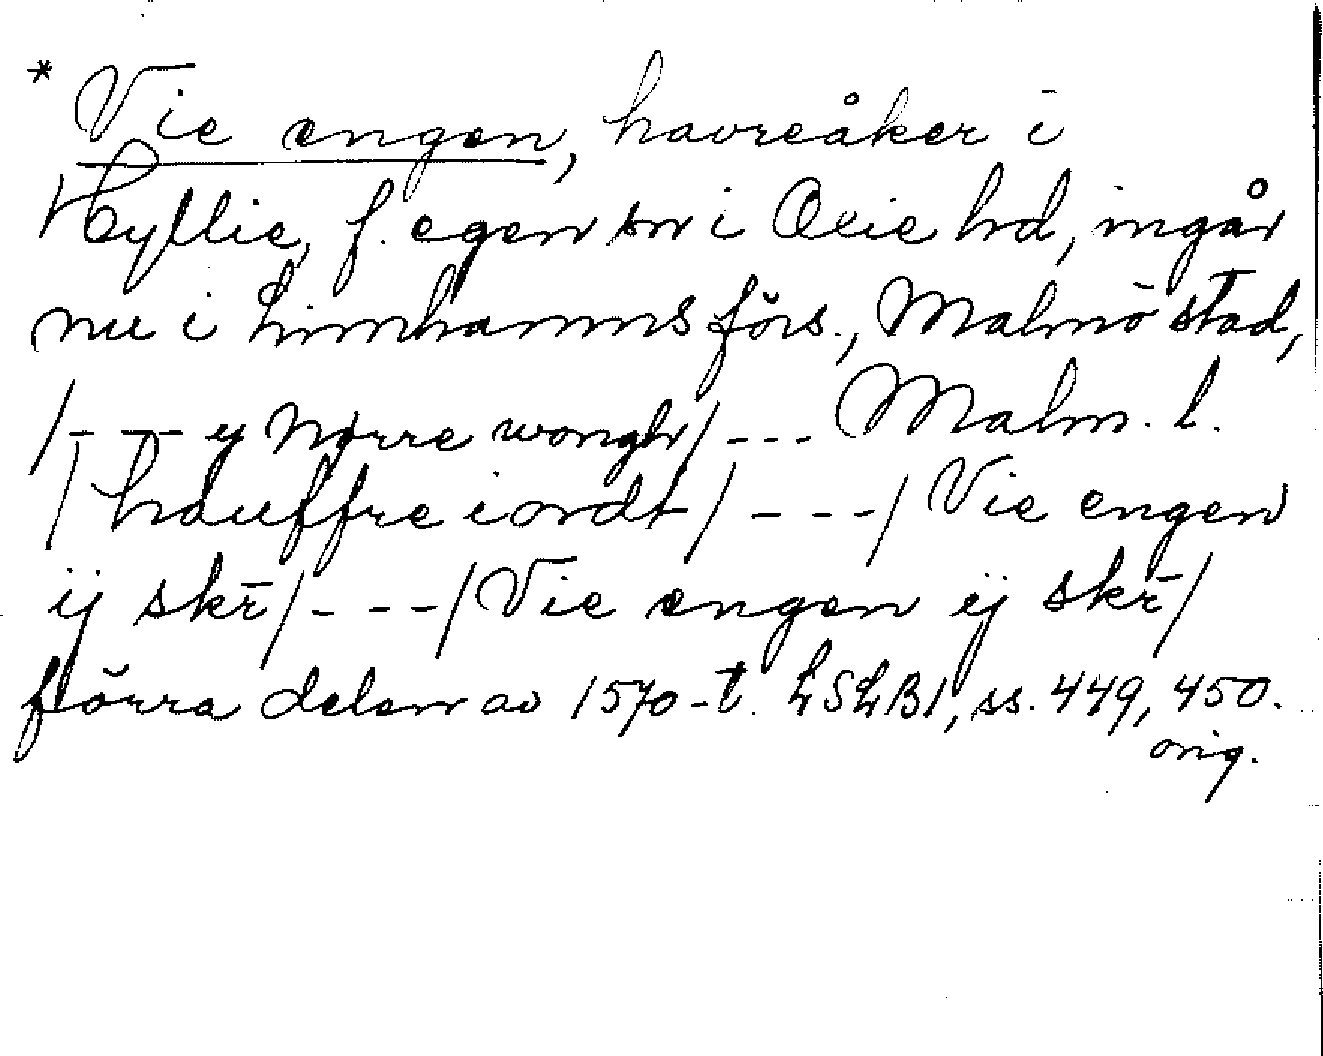 * Vie engen, havreåker i
Hyllie, f. egen sn i Oxie hd, ingår
nu i Limhamns förs., Malmö stad,
/- - - y Nørre wongh/ - - - Malm. l.
/hauffre iordt/ - - -/ Vie engen
ij skr̄/- - -/ Vie engen ij skr̄/
förra delen av 1570-t. LSLB1, ss. 449, 450.
orig.